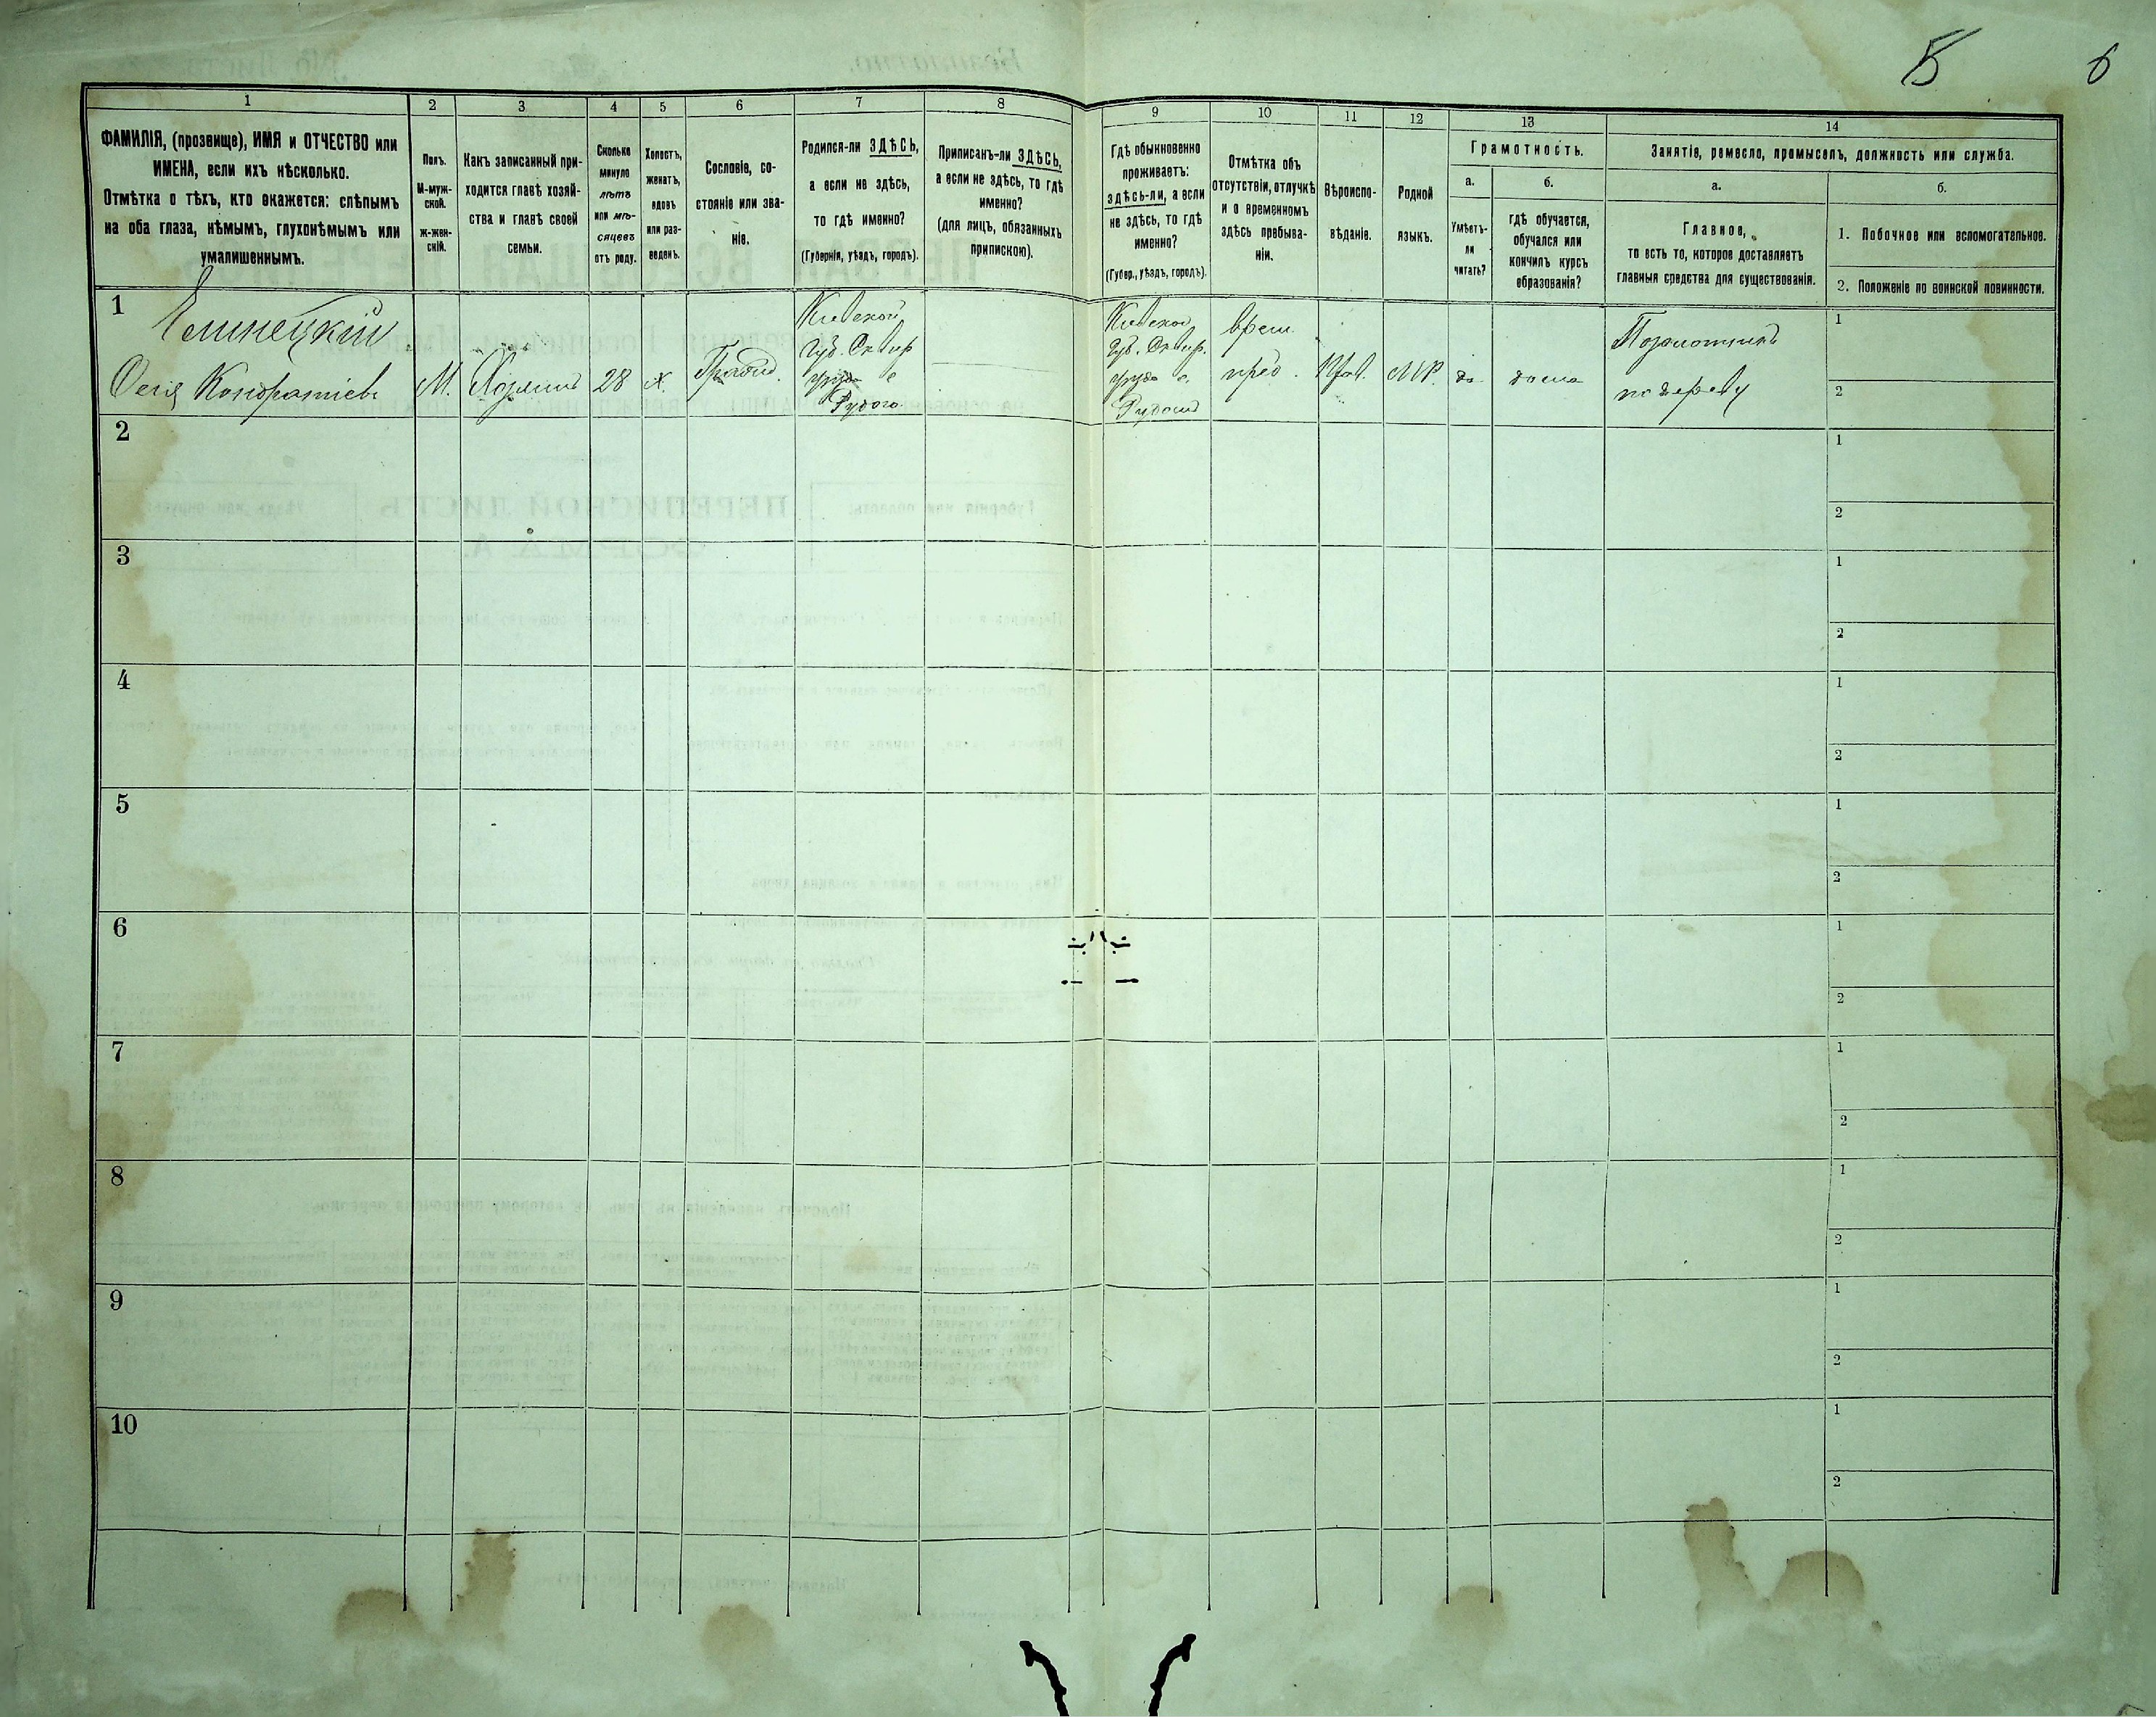 5 6
1 2 3 4 5 6 7 8 9 10 11 12 13 14
ФАМИЛІЯ, (прозвище), ИМЯ и ОТЧЕСТВО или
ИМЕНА, если ихъ нѣсколько.
Отмѣтка о тѣхъ, кто окажется: слѣпымъ
на оба глаза, нѣмымъ, глухонѣмымъ или
умалишеннымъ.
Полъ.
М-муж-
ской.
ж-жен-
скій.
Какъ записанный при-
ходится главѣ хозяй-
ства и главѣ своей
семьи.
Сколько
минуло
лѣтъ
или мѣ-
сяцевъ
отъ роду.
Холостъ,
женатъ,
вдовъ
или раз-
веденъ.
Сословіе, со-
стояніе или зва-
ніе.
Родился-ли ЗДѢСЬ,
а если не здѣсь,
то гдѣ именно?
(Губернія, уѣздъ, городъ).
Приписанъ-ли ЗДѢСЬ,
а если не здѣсь, то гдѣ
именно?
(для лицъ, обязанныхъ
припискою).
Гдѣ обыкновенно
проживаетъ:
здѣсь-ли, а если
не здѣсь, то гдѣ
именно?
(Губер., уѣздъ, городъ).
Отмѣтка объ
отсутствіи, отлучкѣ
и о временномъ
здѣсь пребыва-
ніи.
Вѣроиспо-
вѣданіе.
Родной
языкъ.
Грамотность.
а.
Умѣетъ-
ли
читать?
б.
гдѣ обучается,
обучался или
кончилъ курсъ
образованія?
Занятіе, ремесло, промыселъ, должность или служба.
а.
Главное,
то есть то, которое доставляетъ
главныя средства для существованія.
б.
1. Побочное или вспомогательное.
2. Положеніе по воинской повинности.
1
Кондратіевъ
М.
28
х.
Кіевской
Губ. Сквир
с
Кіевской
Губ. Сквир.
с.
врем.
Прав.
да
дома
Позолотчикъ
по дереву
1
2
2
1
2
3
1
2
4
1
2
5
1
2
6
1
2
7
1
2
8
1
2
9
1
2
10
1
2